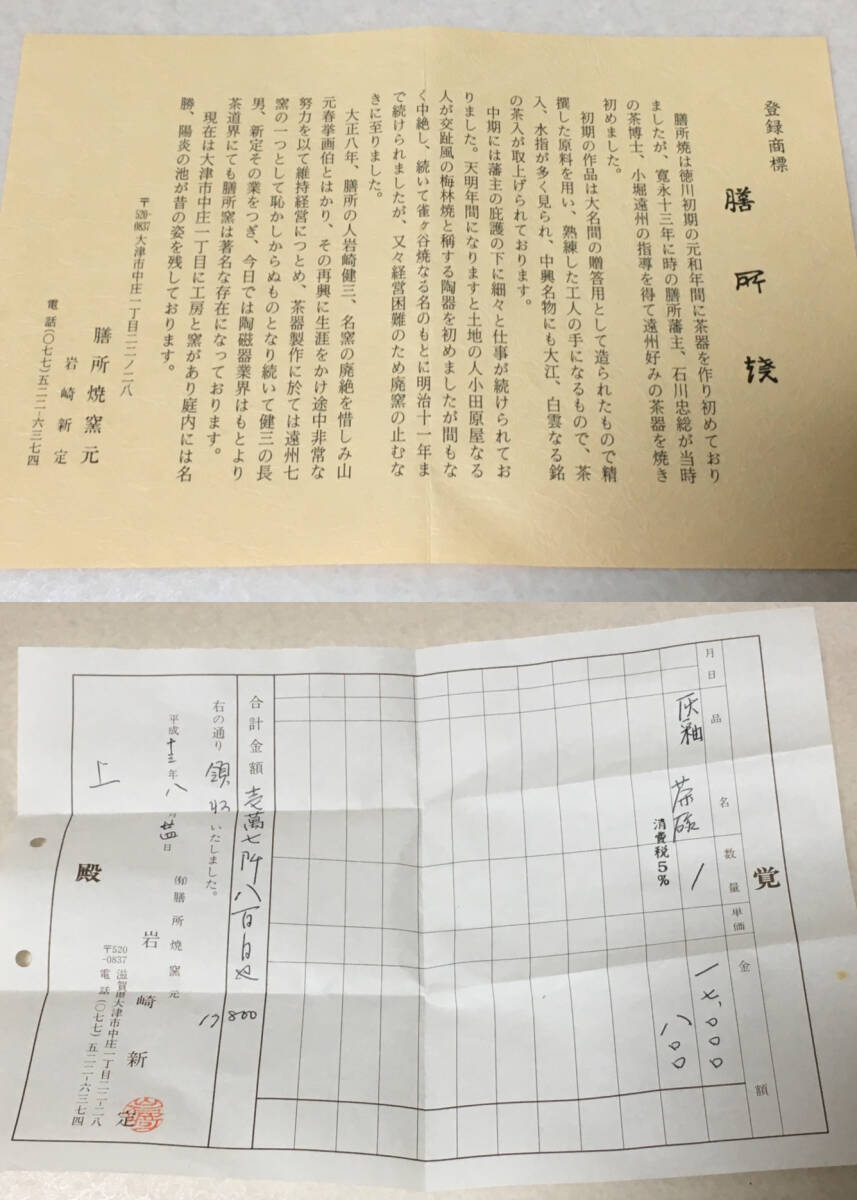 登録商標
膳所焼
膳所焼は徳川初期の元和年間に茶器を作り初めており
ましたが、寛永十三年に時の膳所藩主、石川忠総が当時
の茶博士、小堀遠州の指導を得て遠州好みの茶器を焼き
初めました。
初期の作品は大名間の贈答用として造られたもので精
撰した原料を用い、熟練した工人の手になるもので、茶
入、水指が多く見られ、中興名物にも大江、白雲なる銘
の茶入が取上げられております。
中期には藩主の庇護の下に細々と仕事が続けられてお
りました。天明年間になりますと土地の人小田原屋なる
人が交趾風の梅林焼と称する陶器を初めましたが間もな
く中絶し、続いて雀ヶ谷焼なる名のもとに明治十一年ま
で続けられましたが、又々経営困難のため廃窯の止むな
きに至りました。
大正八年、膳所の人岩崎健三、名窯の廃絶を惜しみ山
元春挙画伯とはかり、その再興に生涯をかけ途中非常な
努力を以て維持経営につとめ、茶器製作に於ては遠州七
窯の一つとして恥かしからぬものとなり続いて健三の長
男、新定その業をつぎ、今日では陶磁器業界はもとより
茶道界にても膳所窯は著名な存在になっております。
現在は大津市中庄一丁目に工房と窯があり庭内には名
勝、陽炎の池が昔の姿を残しております。
〒520-0837 大津市中庄一丁目二二ノ二八
膳所焼窯元
岩崎新定
電話(〇七七)五二二-六三七四
覚
月日 品名 数量 単価 金額
灰釉 茶碗 1 一七,〇〇〇
消費税5% 八〇〇
合計金額 壱萬七阡八百円也 17800
右の通り 領収 いたしました。
平成十三年八月廿四日
㈲膳所焼窯元
岩崎新定
〒520-0837 滋賀県大津市中庄一丁目二二-二八
電話(〇七七)五二二-六三七四
上 殿